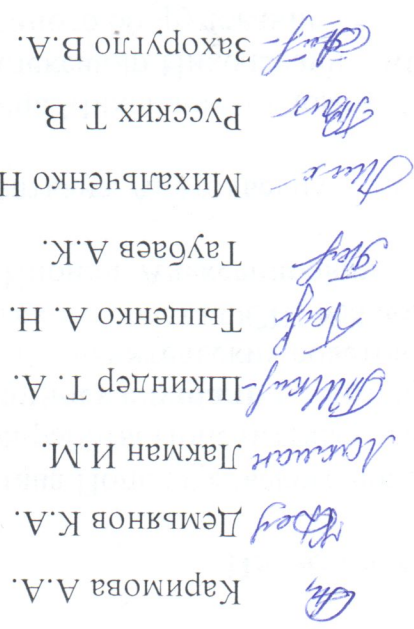 Каримова А.А.
Демьянов К.А.
Лакман Лакман И.М.
Шкиндер Т. А.
Тыщенко А. Н.
Таубаев А.К.
Михальченко Н
Русских Т. В.
Захоругло В.А.